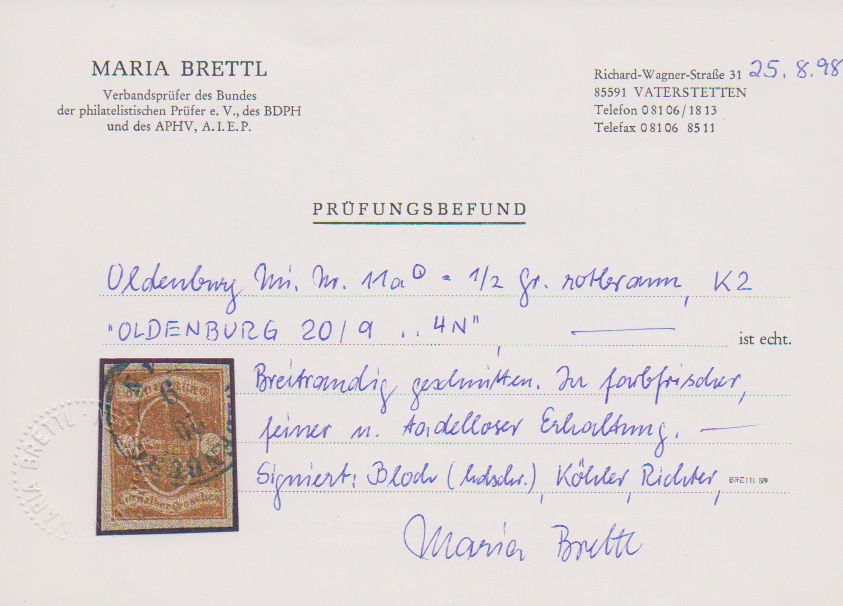 MARIA BRETTL
Verbandsprüfer des Bundes
der philatelistischen Prüfer e. V., des BDPH
und des APHV, A.I.E.P.
Richard-Wagner-Straße 31 25. 8. 98
85591 VATERSTETTEN
Telefon 0 81 06 / 18 13
Telefax 0 81 06 85 11
PRÜFUNGSBEFUND
Oldenburg Mi. Nr. 11a = 1/2 Gr. rotbraun, K2
"OLDENBURG 20/9 .. 4N", ist echt.
Breitrandig geschnitten. In farbfrischer,
feiner u. tadelloser Erhaltung.
Signiert: Bloch (hdschr.), Köhler, Richter, BRETTL 89
Maria Brettl
MARIA BRETTL